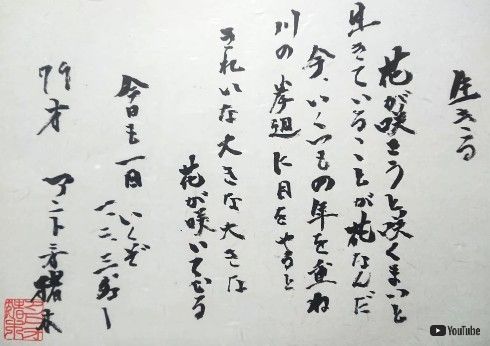 生きる
花が咲こうと咲くまいと
生きていることが花なんだ
今、いくつもの年を重ね
川の岸辺に目をやると
きれいな大きな大きな
花が咲いておる
今日も一日いくぞ
一二三ダー
79才 アントニオ猪木
YouTube